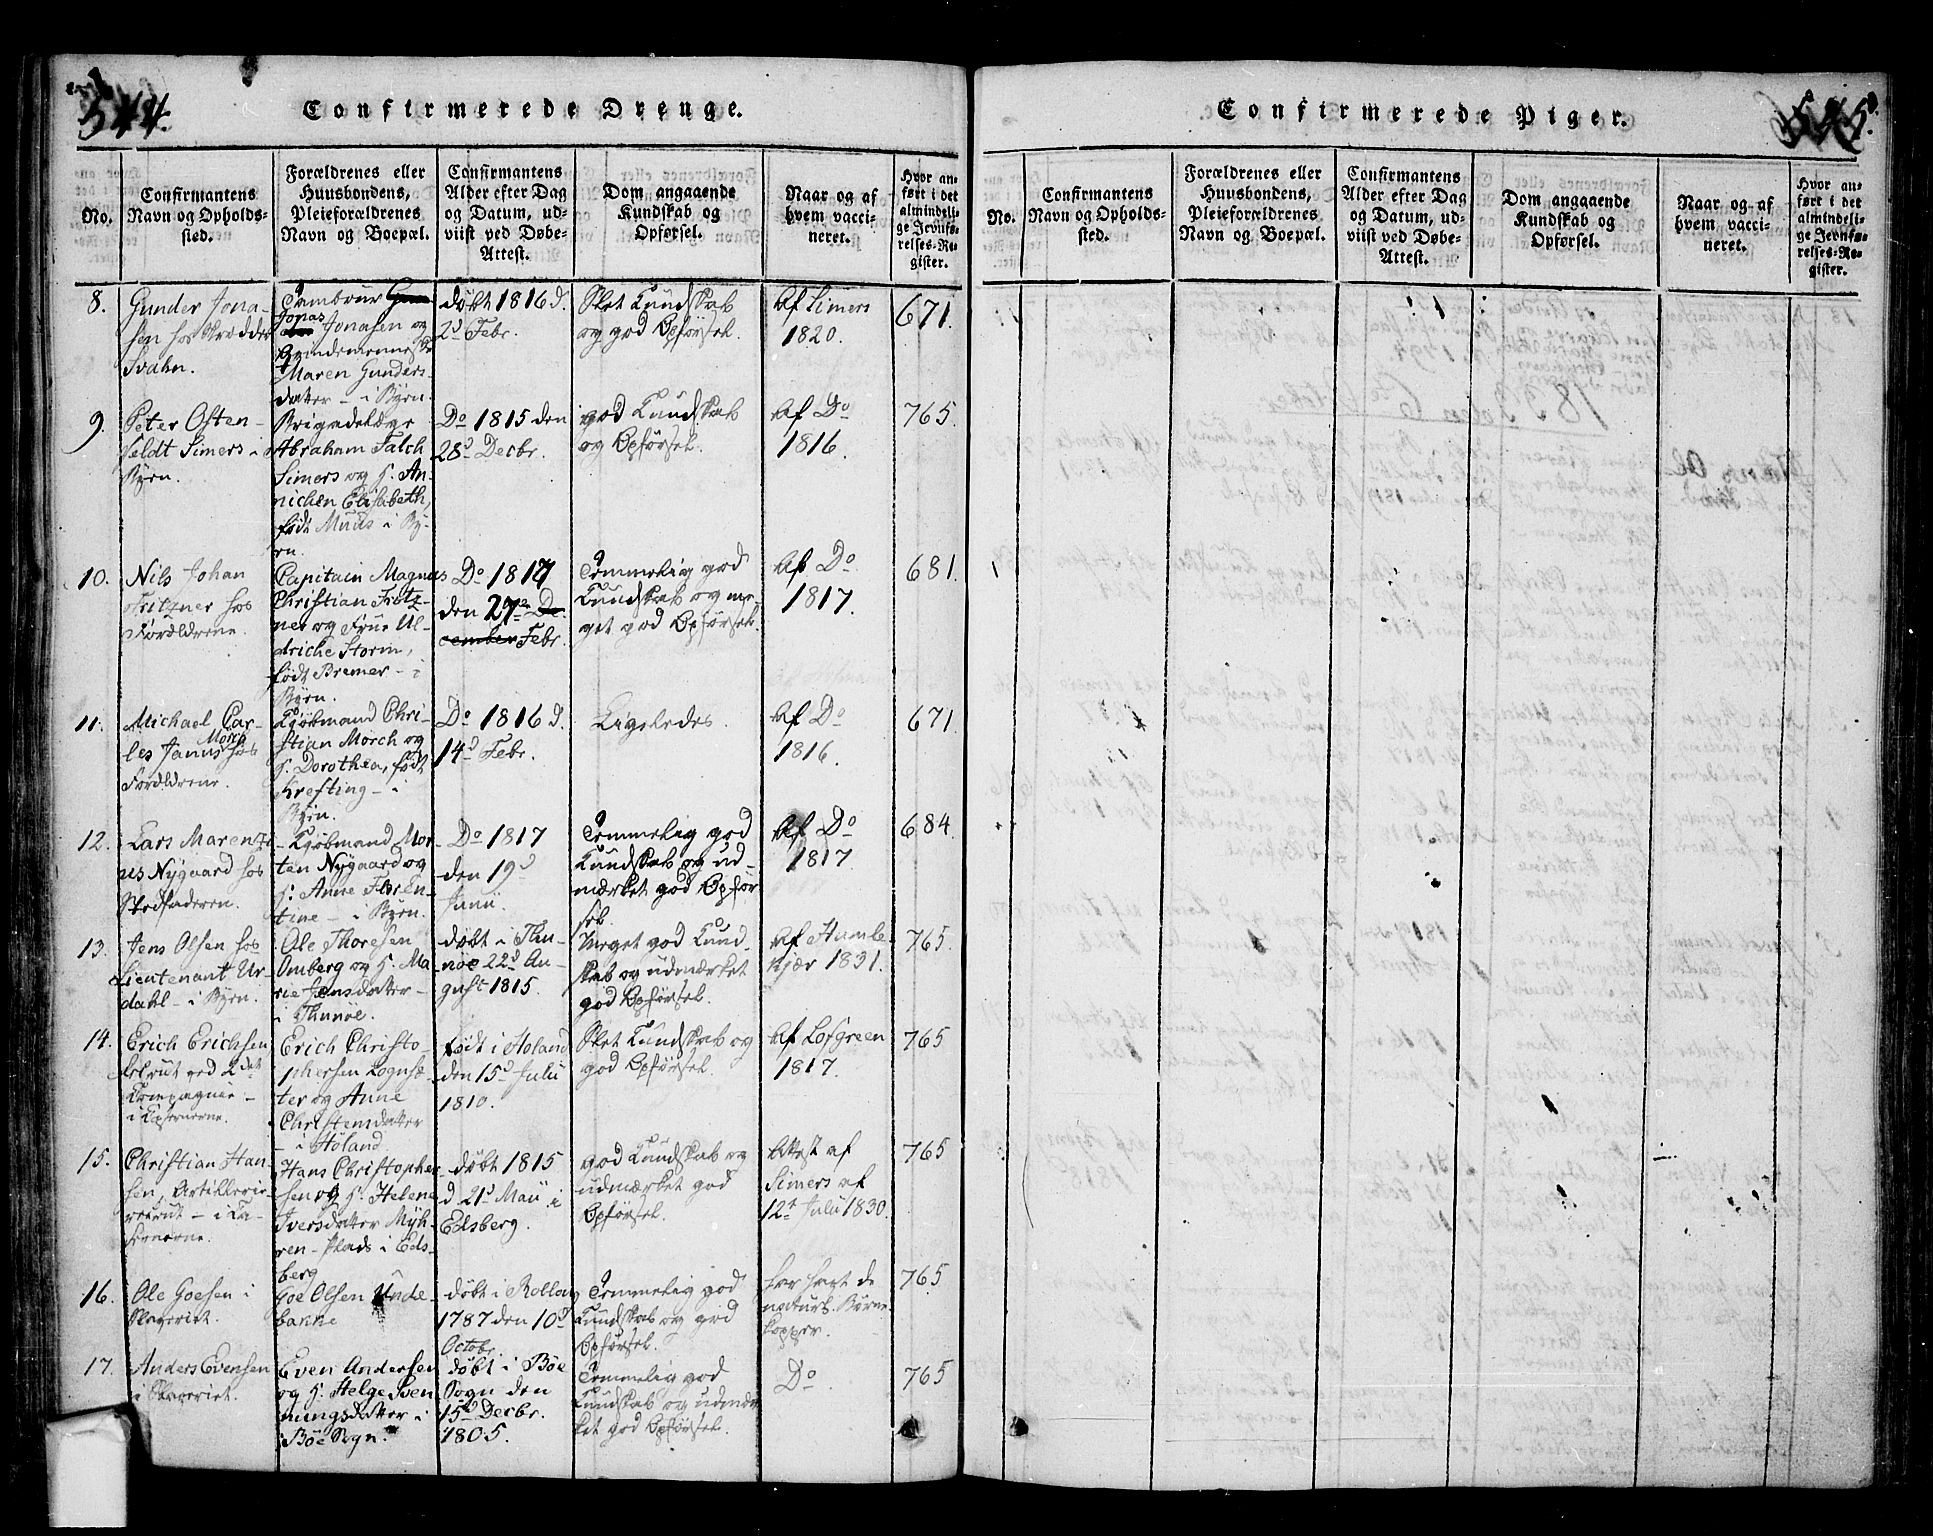 544.
Confirmerede Drenge.
No.
Confirmantens
Navn og Opholds-
sted.
Forældrenes eller
Huusbondens,
Pleieforældrenes
Navn og Boepæl.
Confirmantens
Alder efter Dag
og Datum, ud-
viist ved Døbe-
Attest.
Dom angaaende
Kundskab og
Opførsel.
Naar og af
hvem vacci-
neret.
Hvor an-
ført i det
almindeli-
ge Jevnfø-
relses-Re-
gister.
8.
Gunder Jona-
sen hos Skrædder
Svahn.
Tambour
Jonas Jonasen og
Qvindemenneske
Maren Gunders-
datter - i Byen
døbt 1816 d.
2d Febr.
Slet Kundskab
og god Opførsel.
Af Simers
1820.
671.
9.
Peter Osten-
feldt Simers i
Byen.
Brigadelæge
Abraham Falch
Simers og H. An-
nichen Elisabeth,
født Muus i By-
en.
Do 1815 den
28d Decbr.
god Kundskab
og Opførsel.
Af Do
1816.
765.
10.
Nils Johan
Fritzner hos
Forældrene.
Capitain Magnus
Christian Fritz-
ner og Frue Ul-
driche Storm,
født Bremer - i
Byen.
Do 1817
den 27de De-
cember Febr.
Temmelig god
Kundskab og me-
get god Opførsel.
Af Do.
1817.
681.
11.
Michael Car-
les Janus Mørch hos
Forældrene.
Kjøbmand Chri-
stian Mørch og
H. Dorothea, født
Krefting - i
Byen.
Do 1816 d.
14d Febr.
Ligeledes.
Af Do
1816.
671.
12.
Lars Marenti-
us Nygaard hos
Stedfaderen.
Kjøbmand Mor-
ten Nygaard og
H. Anne Floren-
tine - i Byen.
Do 1817
den 19d
Junii.
Temmelig god
Kundskab og ud-
mærket god Opfør-
sel.
Af Do
1817
684.
13.
Jens Olsen hos
Lieutenant Ur-
dahl - i Byen.
Ole Thoresen
Omberg og H. Ma-
rie Jensdatter -
i Thunøe.
døbt i Thu-
nøe 22d Au-
gust 1815.
Meget god Kund-
skab og udmærket
god Opførsel.
Af Humle-
kjær 1831.
765.
14.
Erich Erichsen
Recrut ved 2det
Compagnie -
i Casernerne.
Erich Christo-
phersen Lognsæ-
ter og Anne
Christensdatter
- i Høland
født i Høland
den 15d Julii
1810.
Slet Kundskab og
god Opførsel.
Af Løfgreen
1817.
765
15.
Christian Han-
sen, Artillerie-
recrut - i Ca-
sernerne.
Hans Christopher-
sen og H. Helene
Iversdatter Myh-
ren - Plads i Eds-
berg
døbt 1815
d 21d Maii i
Edsberg.
god Kundskab og
udmærket god
Opførsel.
Attest af
Simers af
12te Julii 1830.
765
16.
Ole Goesen i
Slaveriet.
Goe Olsen Unde-
bakke
døbt i Rollag
1787 den 10d
Octobr.
Temmelig god
Kundskab og god
Opførsel.
har havt de
naturl. Børne-
kopper.
765
17.
Anders Evensen
i Slaveriet.
Even Andersen
og H. Helge Sven-
nungsdatter i
Bøe Sogn.
døbt i Bøe
Sogn den
15d Decbr.
1805.
Temmelig god
Kundskab og udmær-
ket god Opførsel.
Do
765
545.
Confirmerede Piger.
No.
Confirmantens
Navn og Opholds-
sted.
Forældrenes eller
Huusbondens,
Pleieforældrenes
Navn og Boepæl.
Confirmantens
Alder efter Dag
og Datum, ud-
viist ved Døbe-
Attest.
Dom angaaende
Kundskab og
Opførsel.
Naar og af
hvem vacci-
neret.
Hvor an-
ført i det
almindeli-
ge Jevnfø-
relses-Re-
gister.